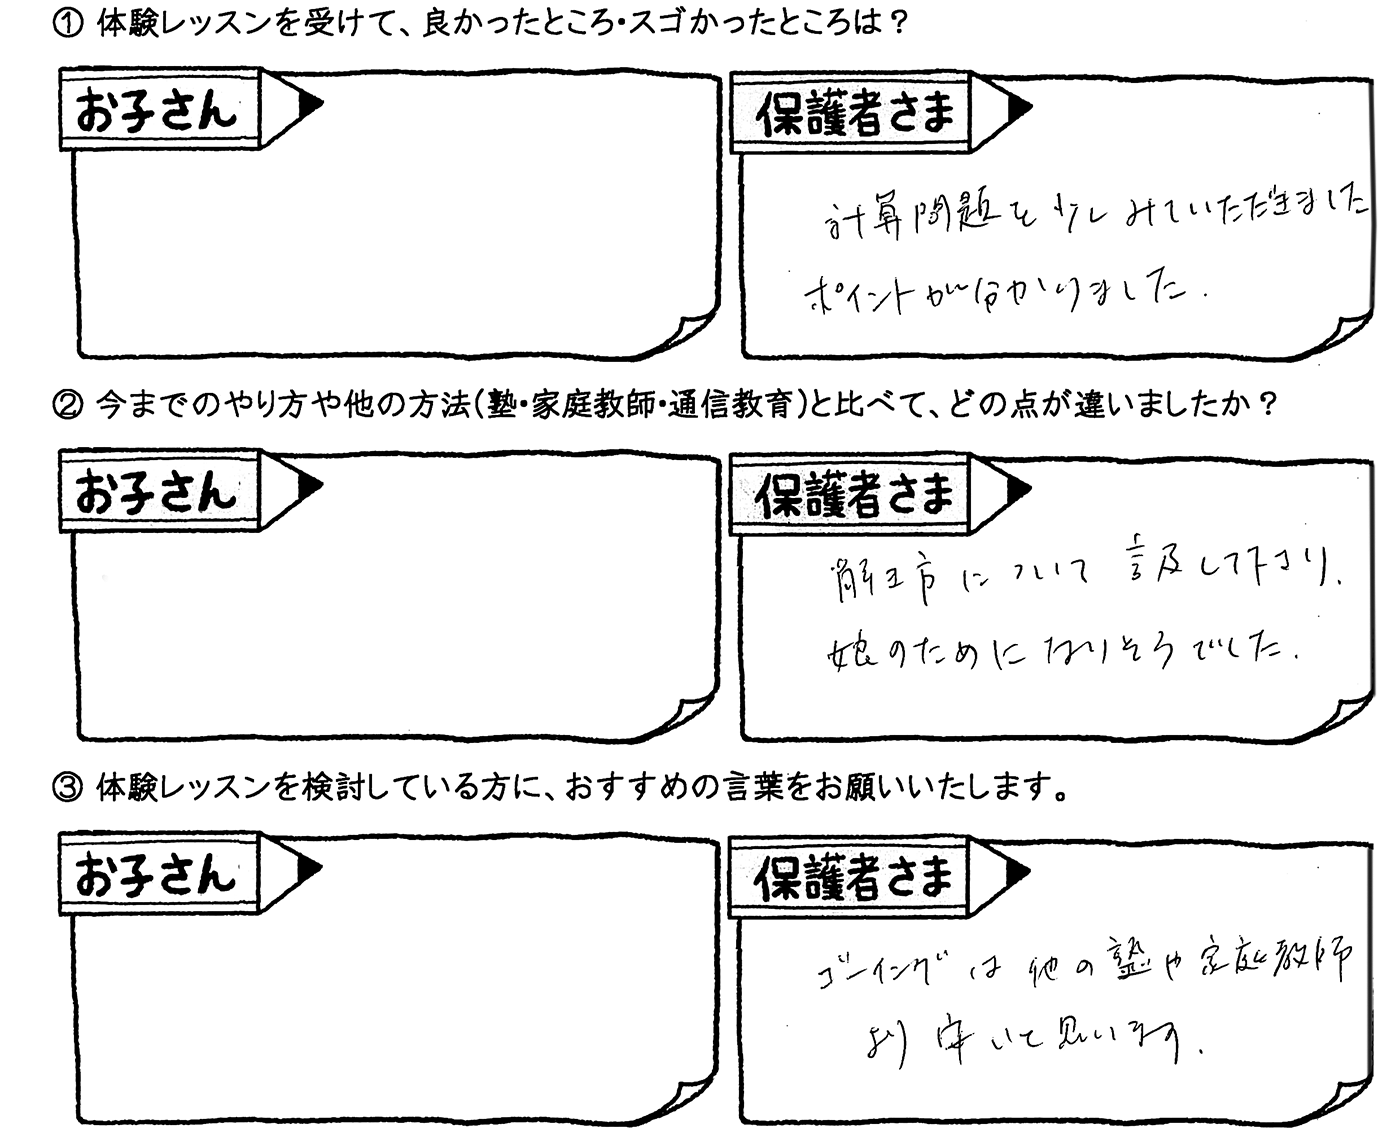 ① 体験レッスンを受けて、良かったところ・スゴかったところは？
お子さん
保護者さま
計算問題を少しみていただきました
ポイントが分かりました.
② 今までのやり方や他の方法(塾・家庭教師・通信教育)と比べて、どの点が違いましたか？
お子さん
保護者さま
解き方について言及して下さり、
娘のためになりそうでした.
③ 体験レッスンを検討している方に、おすすめの言葉をお願いいたします。
お子さん
保護者さま
ゴーイングは他の塾や家庭教師
より安いと思います.